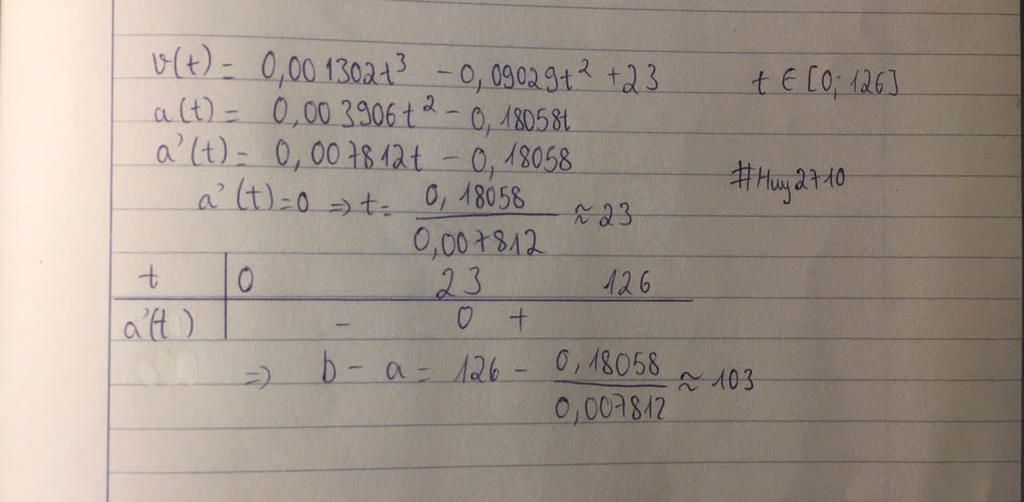 v(t) = 0,001302t³ - 0,09029t² + 23 t ∈ [0; 126]
a(t) = 0,003906t² - 0,18058t
a'(t) = 0,007812t - 0,18058
#Huy2710
a'(t)=0 => t= 0,18058 / 0,007812 ≈ 23
t 0 23 126
a'(t) - 0 +
=> b - a = 126 - 0,18058 / 0,007812 ≈ 103